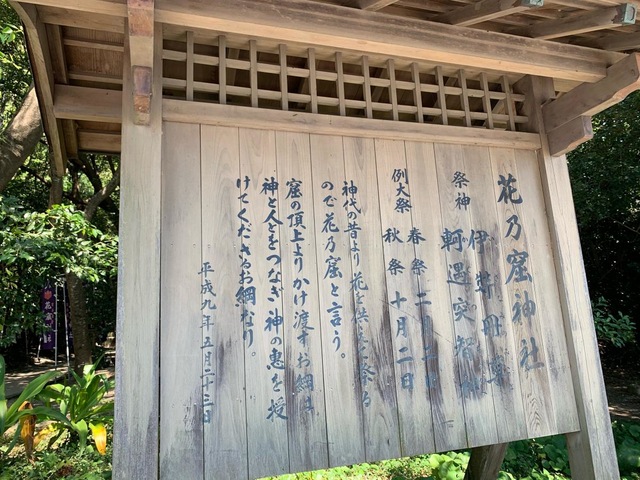 花乃窟神社
祭神 伊弉冊尊
軻遇突智
例大祭 春祭 二月二日
秋祭 十月二日
神代の昔より花を供えて祭る
ので花乃窟と言う。
窟の頂上よりかけ渡すお綱は
神と人とをつなぎ神の恵を授
けてくださるお綱なり。
平成九年五月二十三日